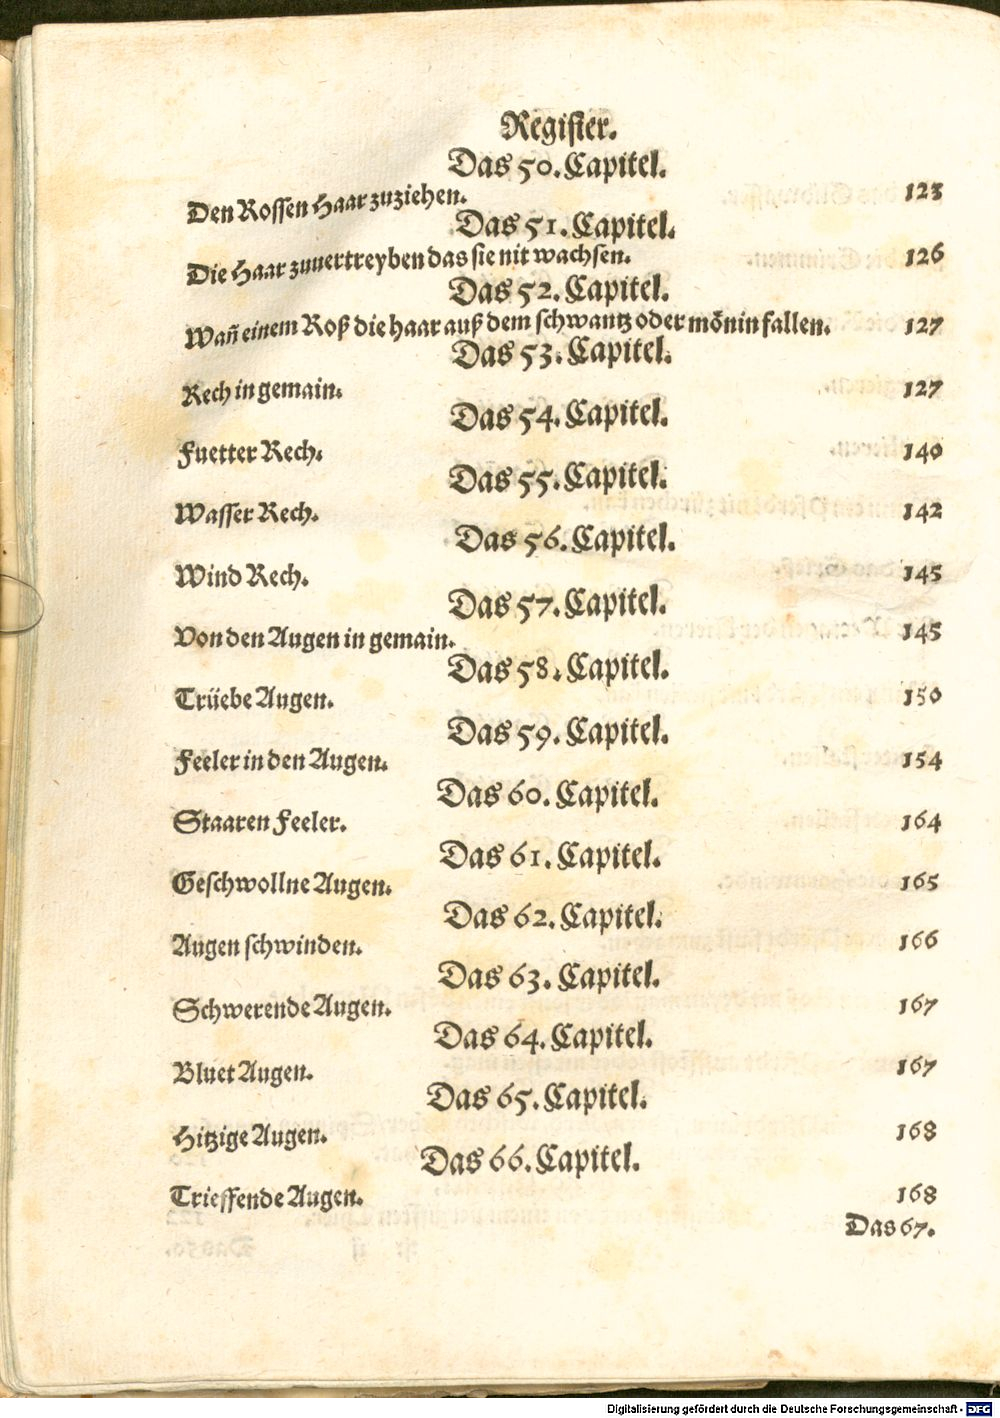 Register.
Das 50. Capitel.
Den Rossen Haar zuziehen. 123
Das 51. Capitel.
Die Haar zuuertreyben das sie nit wachsen. 126
Das 52. Capitel.
Wañ einem Roß die haar auß dem schwantz oder mönin fallen. 127
Das 53. Capitel.
Rech in gemain. 127
Das 54. Capitel.
Fuetter Rech. 140
Das 55. Capitel.
Wasser Rech. 142
Das 56. Capitel.
Wind Rech. 145
Das 57. Capitel.
Von den Augen in gemain. 145
Das 58. Capitel.
Trüebe Augen. 150
Das 59. Capitel.
Feeler in den Augen. 154
Das 60. Capitel.
Staaren Feeler. 164
Das 61. Capitel.
Geschwollne Augen. 165
Das 62. Capitel.
Augen schwinden. 166
Das 63. Capitel.
Schwerende Augen. 167
Das 64. Capitel.
Bluet Augen. 167
Das 65. Capitel.
Hitzige Augen. 168
Das 66. Capitel.
Trieffende Augen. 168
Das 67.
Digitalisierung gefördert durch die Deutsche Forschungsgemeinschaft - DFG